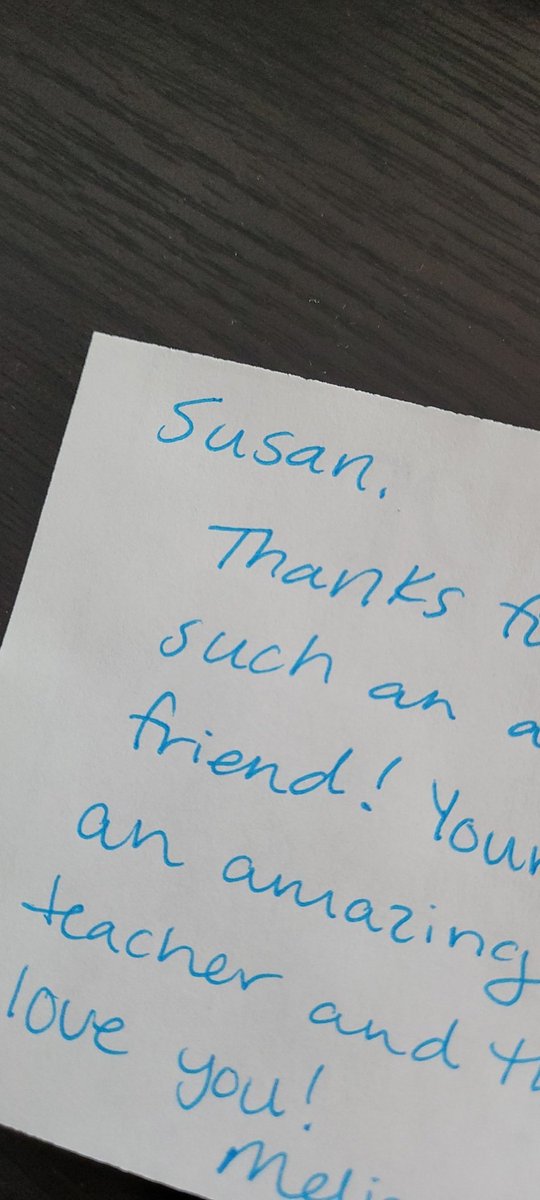 Susan,
Thanks
such an
friend!
an amazing
teacher and
love you!